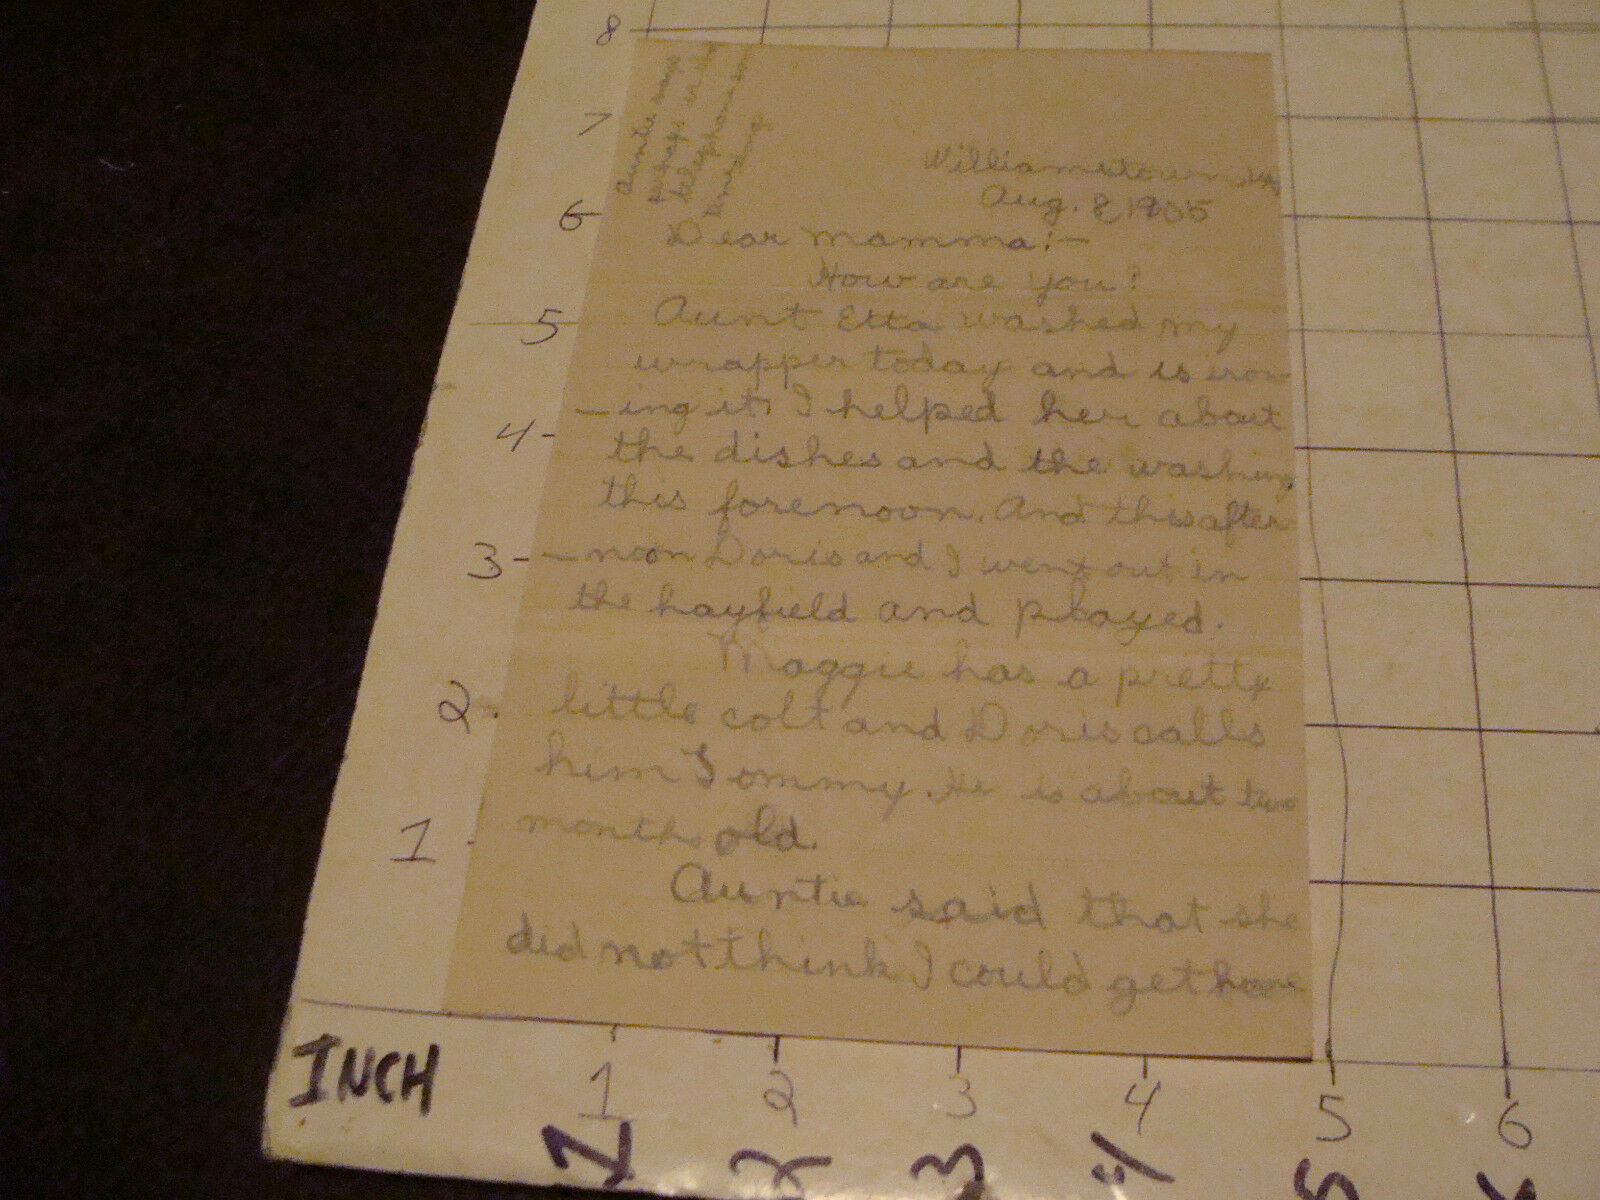 8
7
6
5
4
3
2
1
Auntie says
perhaps
telephone
Williamstown, Vt.
Aug. 8 1905
Dear mamma:-
How are you?
Aunt Etta washed my
wrapper today and is iron-
-ing it. I helped her about
the dishes and the washing
this forenoon. And this after
-noon Doris and I went out in
the hayfield and played.
Maggie has a pretty
little colt and Doris calls
him Tommy. He is about two
months old.
Auntie said that she
did not think I could get home
INCH
1 2 3 4 5 6
1 2 3 4 5